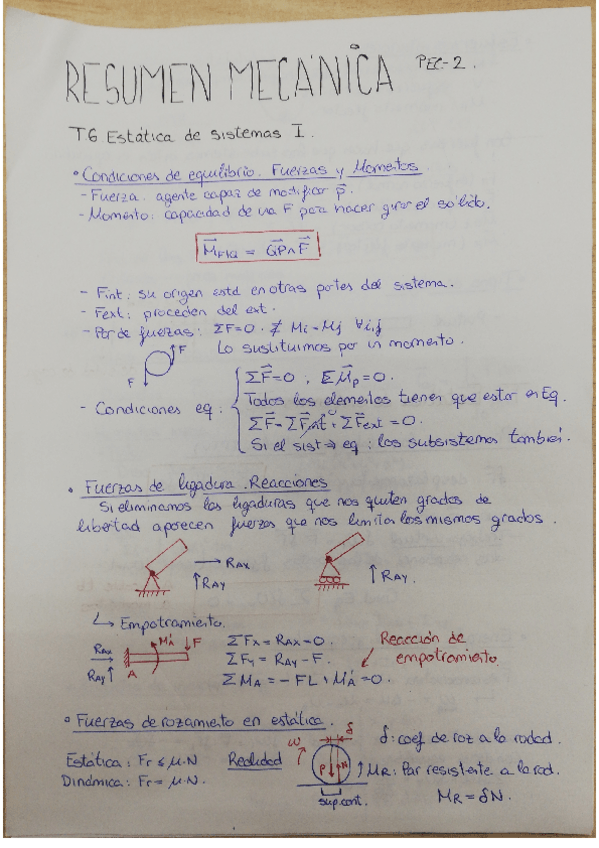 RESUMEN MECÁNICA PEC-2.
T6 Estática de sistemas I.
• Condiciones de equilibrio. Fuerzas y Momentos.
- Fuerza: agente capaz de modificar p⃗.
- Momento: capacidad de una F para hacer girar el sólido.
M⃗F/Q = Q⃗P∧F⃗
- Fint: su origen está en otras partes del sistema.
- Fext: proceden del ext.
- Par de fuerzas: ΣF=0.
Lo sustituimos por un momento.
F
F
- Condiciones eq:
ΣF⃗=0 ; ΣM⃗p=0.
Todos los elementos tienen que estar en Eq.
ΣF⃗=ΣF⃗int + ΣF⃗ext = 0.
0
Si el sist → eq : los subsistemas también.
• Fuerzas de ligadura. Reacciones
Si eliminamos las ligaduras que nos quiten grados de
libertad aparecen fuerzas que nos limita los mismos grados.
RAX
RAY
RAY.
↳ Empotramiento.
RAX
RAY
A
MA
F
ΣFx = RAX = 0.
ΣFy = RAY - F.
ΣMA = - FL + MA = 0.
Reacción de
empotramiento
• Fuerzas de rozamiento en estática.
Estática: Fr ≤ μ·N
Dinámica: Fr = μ·N.
Realidad
ω
δ
P
N
sup.cont.
δ: coef de roz a la rodad.
MR: Par resistente a la rod.
MR = δN.